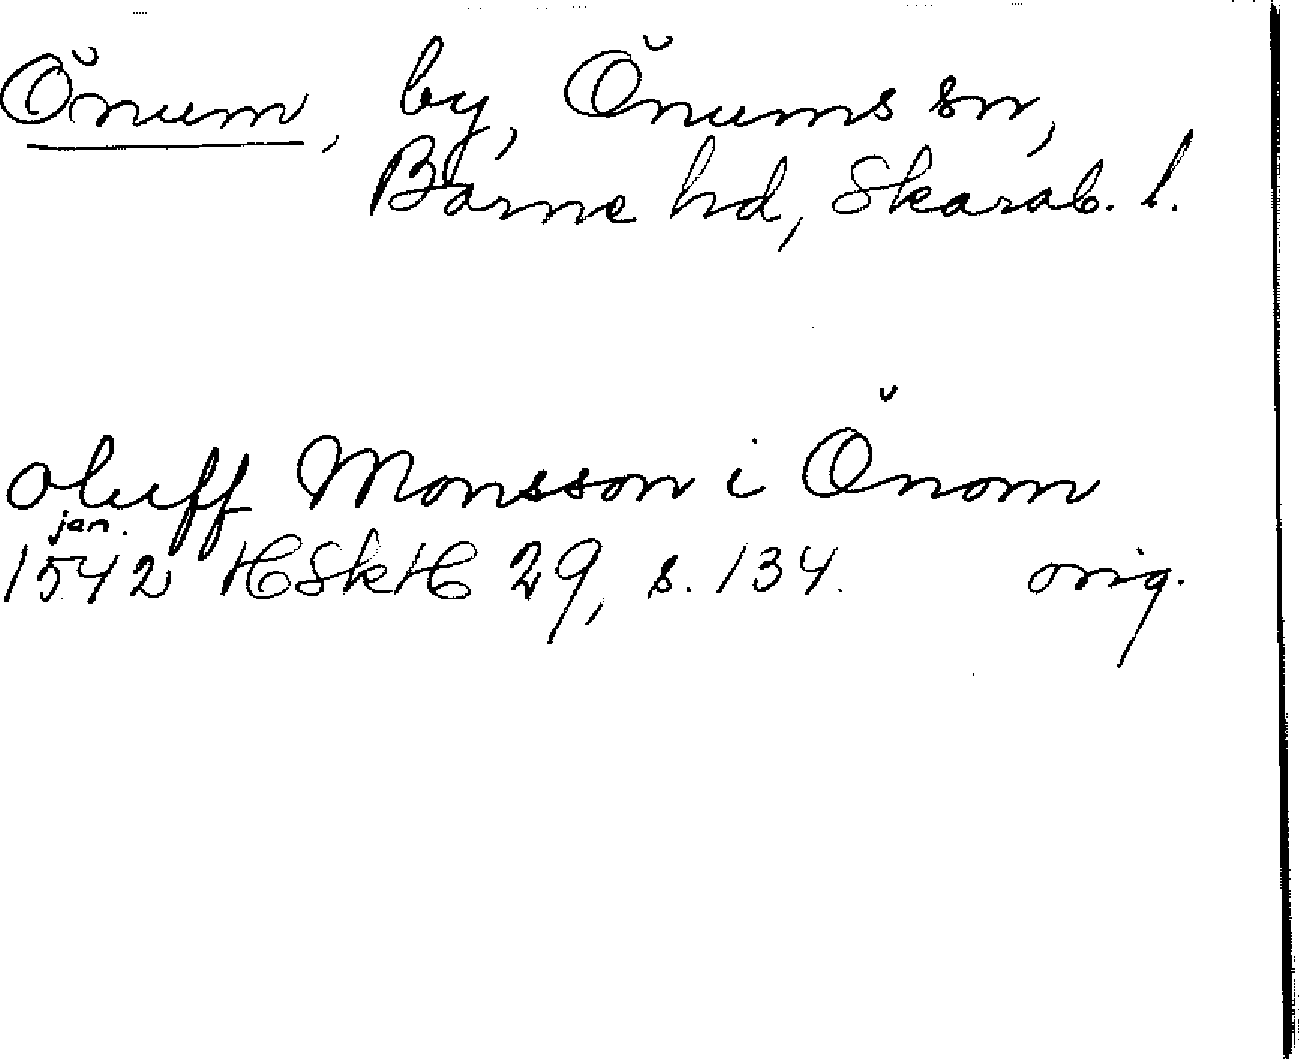 Önum, by, Önums sn,
Barne hd, Skarab. l.
Oluff Monsson i Önom
jan.
1542 HSkH 29, s. 134. orig.